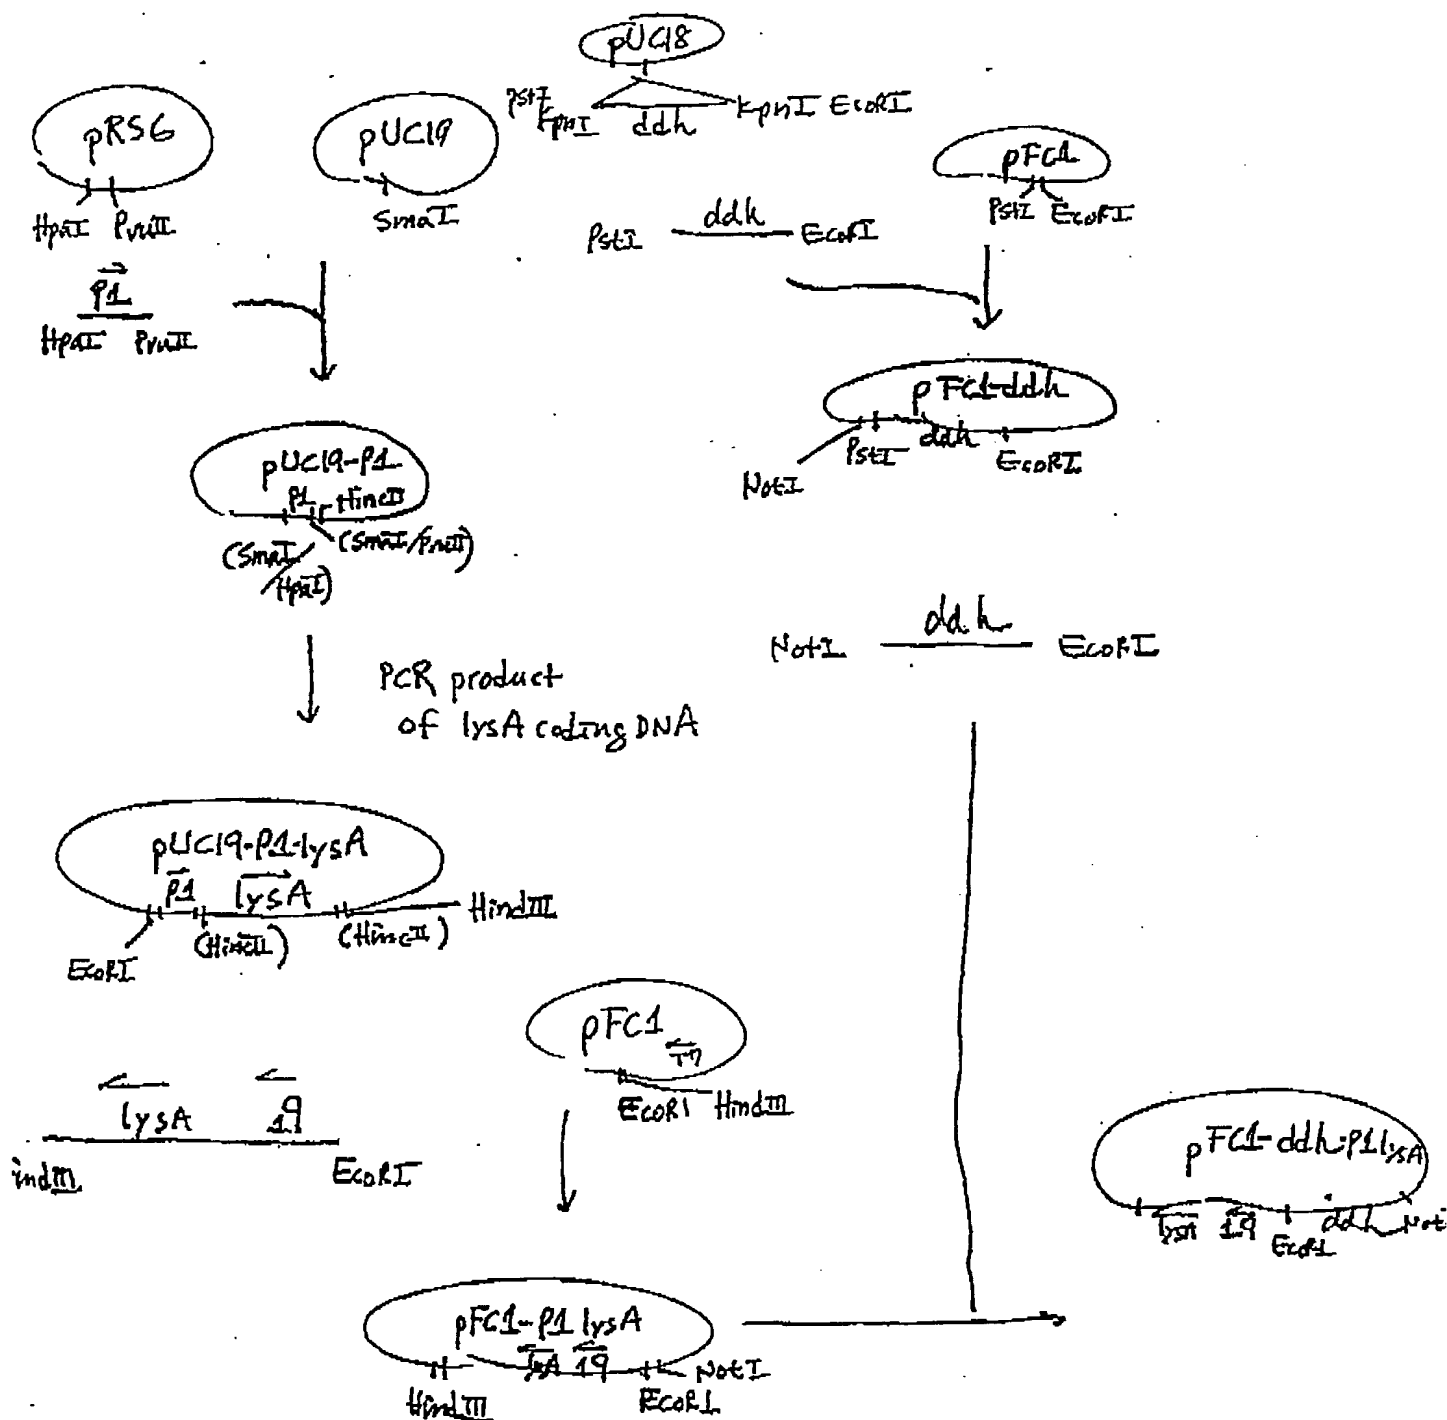 pUC18
PstI
KpnI ddh KpnI EcoRI
pRS6
HpaI PvuII
pUC19
SmaI
pFC1
PstI EcoRI
PstI ddh EcoRI
P1
HpaI PvuII
pFC1-ddh
NotI PstI ddh EcoRI
pUC19-P1
P1 HincII
(SmaI/HpaI) (SmaI/PvuII)
NotI ddh EcoRI
PCR product
of lysA coding DNA
pUC19-P1-lysA
P1 lysA
EcoRI (HincII) (HincII) HindIII
pFC1
T7
EcoRI HindIII
lysA P1
indIII EcoRI
pFC1-ddh-P1lysA
lysA P1 EcoRI ddh Not
pFC1-P1 lysA
lysA P1 NotI
HindIII EcoRI